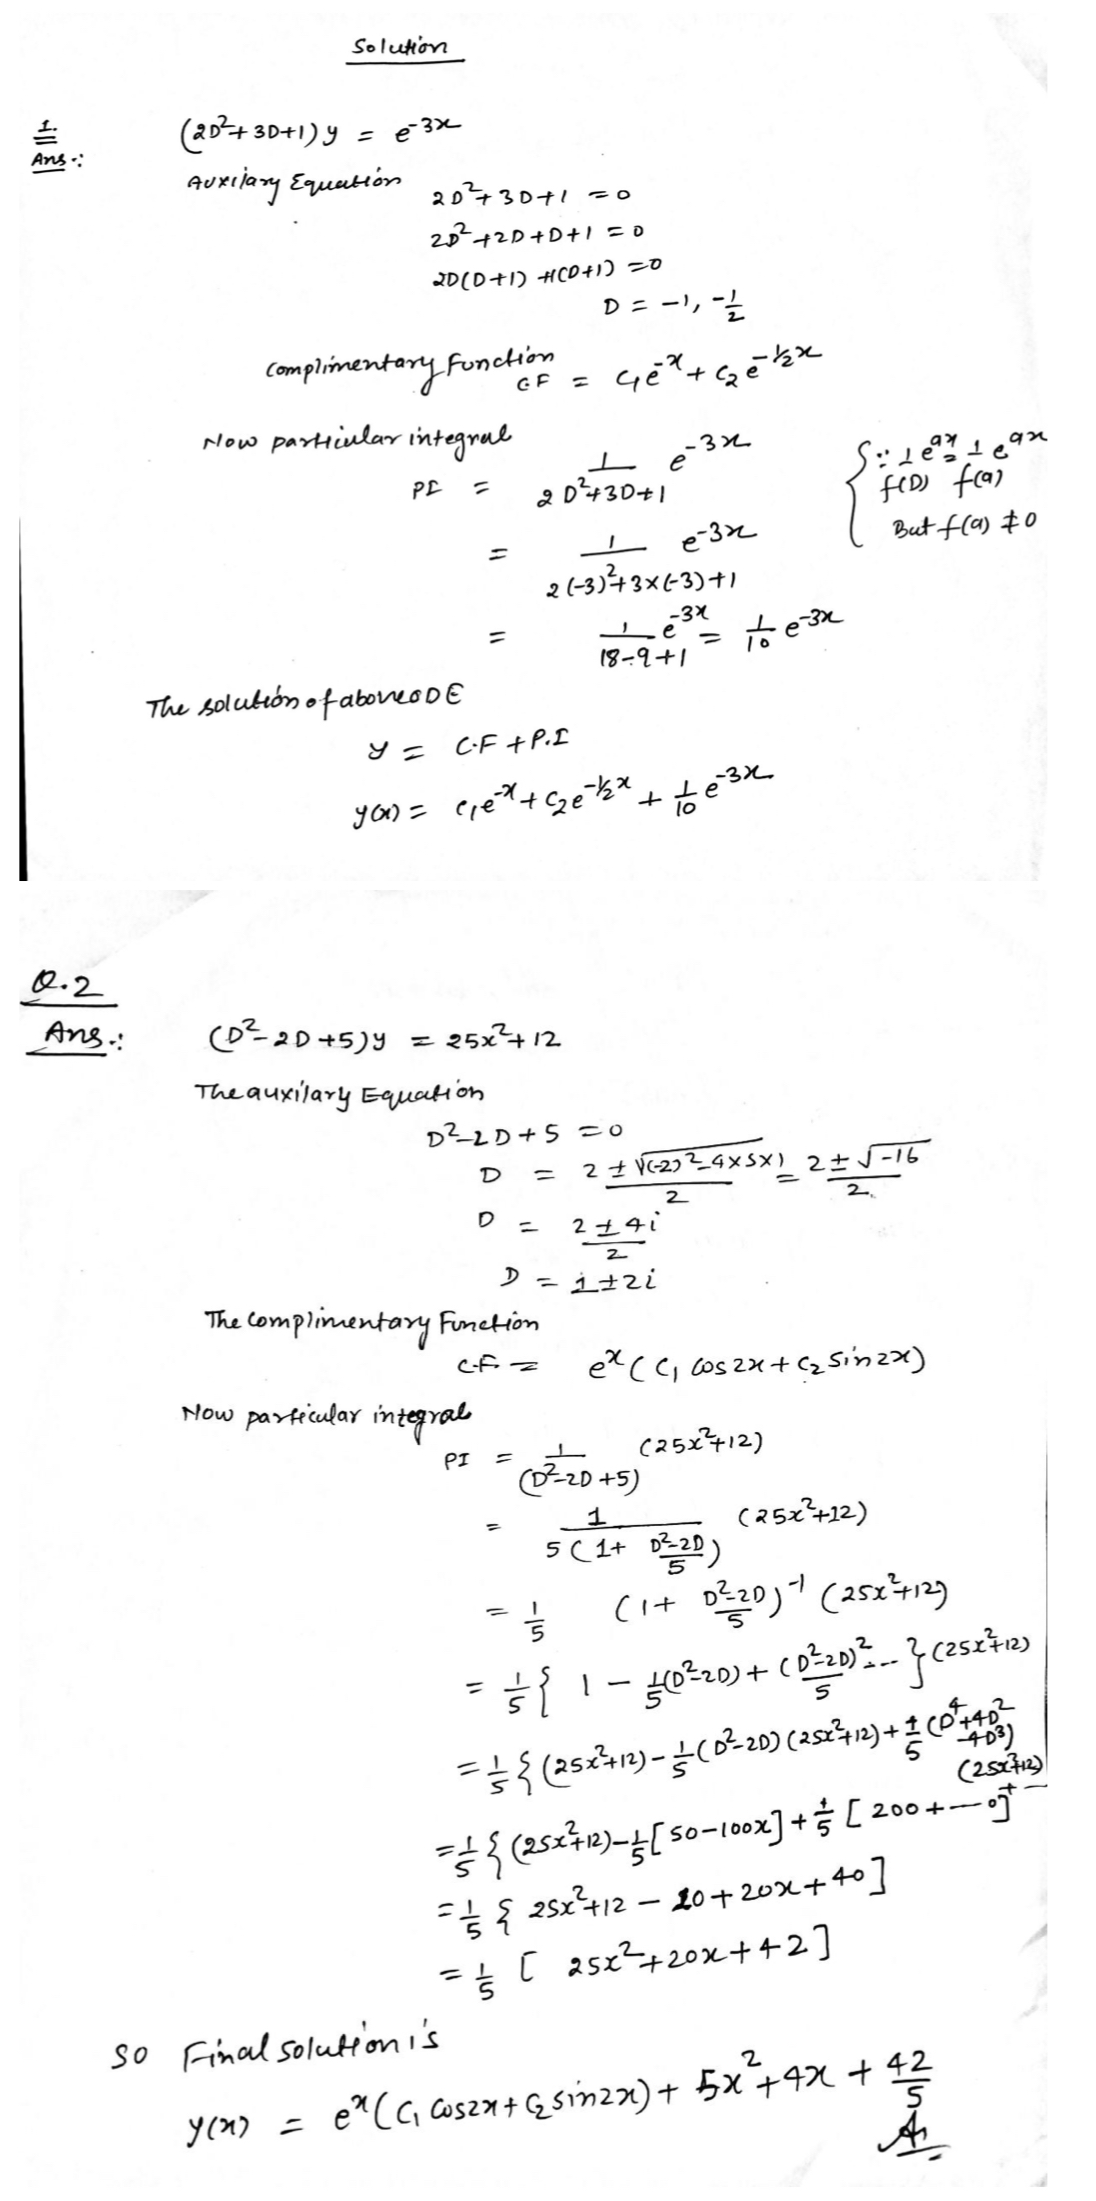 Solution
1.
Ans.:
(2D²+3D+1)y = e^-3x
Auxilary Equation
2D²+3D+1 = 0
2D²+2D+D+1 = 0
2D(D+1)+1(D+1) = 0
D = -1, -1/2
Complimentary function
CF = c₁e^-x + c₂e^-1/2x
Now particular integral
PI = 1/(2D²+3D+1) e^-3x
{∵ 1/f(D) e^ax = 1/f(a) e^ax
But f(a) ≠ 0
= 1/(2(-3)²+3×(-3)+1) e^-3x
= 1/(18-9+1) e^-3x = 1/10 e^-3x
The solution of above ODE
y = C.F + P.I
y(x) = c₁e^-x + c₂e^-1/2x + 1/10 e^-3x
Q.2
Ans.:
(D²-2D+5)y = 25x²+12
The auxilary Equation
D²-2D+5 = 0
D = (2±√((-2)²-4×5×1))/2 = (2±√-16)/2
D = (2±4i)/2
D = 1±2i
The Complimentary Function
C.F. = e^x(C₁ cos2x + C₂ sin2x)
Now particular integral
PI = 1/(D²-2D+5) (25x²+12)
= 1/(5(1+ (D²-2D)/5)) (25x²+12)
= 1/5 (1+ (D²-2D)/5)^-1 (25x²+12)
= 1/5 { 1 - 1/5(D²-2D) + ((D²-2D)²/5 ... } (25x²+12)
= 1/5 { (25x²+12) - 1/5(D²-2D)(25x²+12) + 1/5(D⁴+4D²
-4D³)
(25x²+12)
= 1/5 { (25x²+12) - 1/5[50-100x] + 1/5[200+ — 0]
= 1/5 { 25x²+12 - 10+20x+40]
= 1/5 [ 25x²+20x+42]
So Final solution is
y(x) = e^x(C₁ cos2x + C₂ sin2x) + 5x²+4x + 42/5